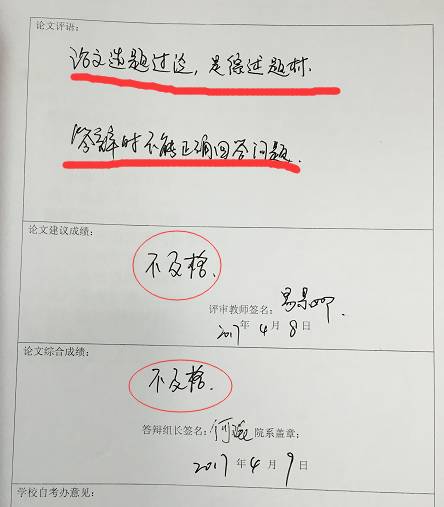 论文评语:
论文选题过泛，是综述题材.
答辩时不能正确回答问题.
论文建议成绩:
不及格.
评审教师签名:
2017年 4 月 8 日
论文综合成绩:
不及格.
答辩组长签名: 院系盖章:
2017 年 4 月 9 日
学校自考办意见: